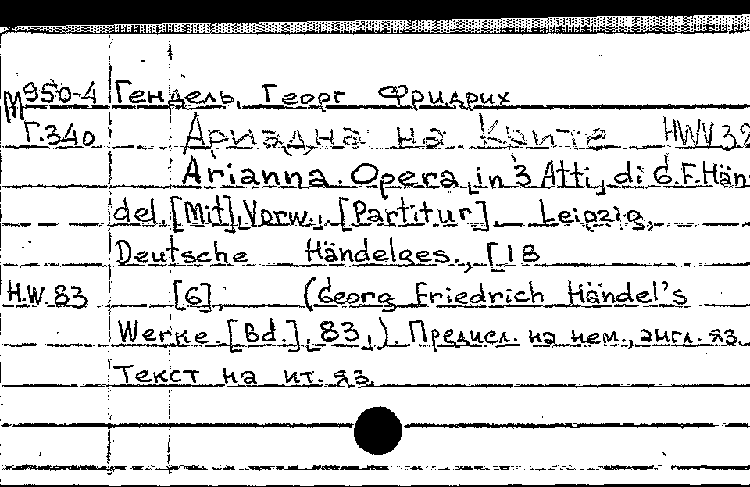 М950-4 Гендель, Георг Фридрих
Г.340 Ариадна на Крите HWV 32
Arianna. Opera in 3 Atti, di G.F. Hän-
del. [Mit] Vorw. [Partitur]. Leipzig,
Deutsche Händelges., [18
H.W. 83 [6], (Georg Friedrich Händel's
Werke. [Bd.], 83,). Предисл. на нем., англ. яз.
Текст на ит. яз.